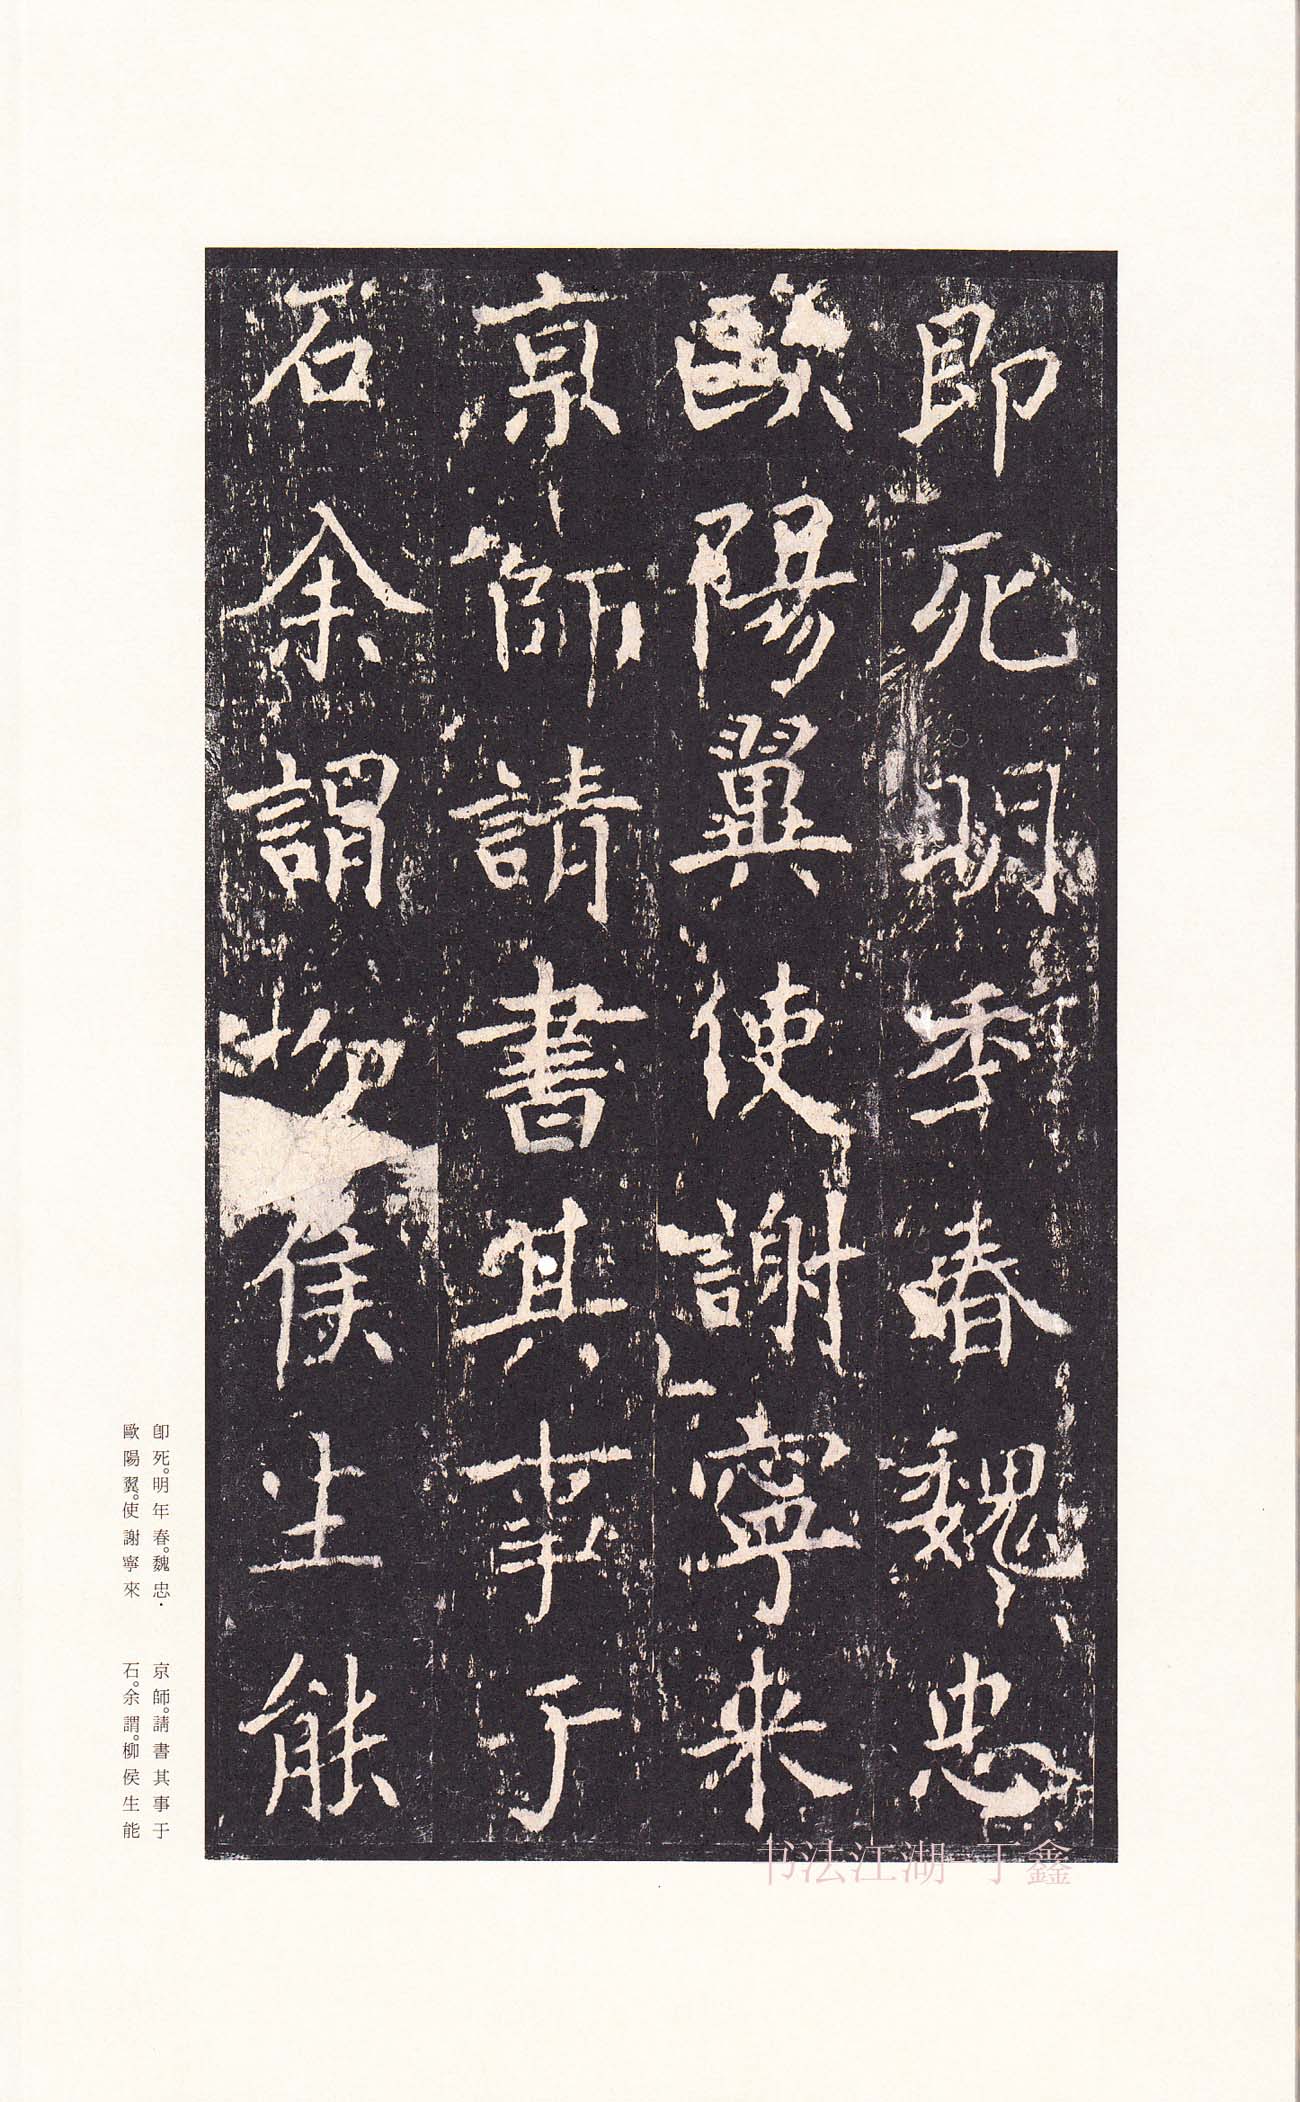 即死明年春魏忠
歐陽翼使謝寧來
京師請書其事于
石余謂柳侯生能
即死。明年春。魏忠·
歐陽翼。使謝寧來
京師。請書其事于
石。余謂。柳侯生能
书法江湖-丁鑫